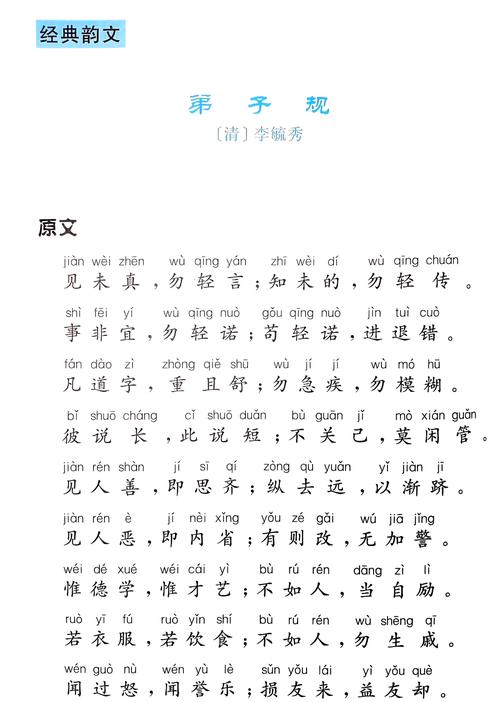 经典韵文
弟子规
〔清〕李毓秀
原文
jiàn wèi zhēn wù qīng yán zhī wèi dí wù qīng chuán
见未真，勿轻言；知未的，勿轻传。
shì fēi yí wù qīng nuò gǒu qīng nuò jìn tuì cuò
事非宜，勿轻诺；苟轻诺，进退错。
fán dào zì zhòng qiě shū wù jí jí wù mó hū
凡道字，重且舒；勿急疾，勿模糊。
bǐ shuō cháng cǐ shuō duǎn bù guān jǐ mò xián guǎn
彼说长，此说短；不关己，莫闲管。
jiàn rén shàn jí sī qí zòng qù yuǎn yǐ jiàn jī
见人善，即思齐；纵去远，以渐跻。
jiàn rén è jí nèi xǐng yǒu zé gǎi wú jiā jǐng
见人恶，即内省；有则改，无加警。
wéi dé xué wéi cái yì bù rú rén dāng zì lì
惟德学，惟才艺；不如人，当自励。
ruò yī fú ruò yǐn shí bù rú rén wù shēng qī
若衣服，若饮食；不如人，勿生戚。
wén guò nù wén yù lè sǔn yǒu lái yì yǒu què
闻过怒，闻誉乐；损友来，益友却。